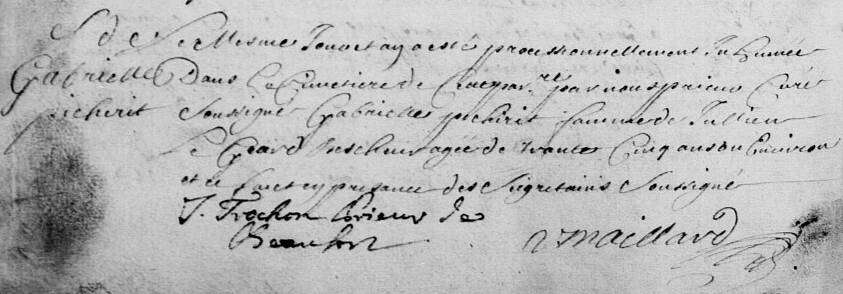 S. de
Gabrielle
picherit
Le Mesme Jour et an a esté processionnellement Inhumée
Dans le Cimetiere de par nous prieur Curé
Soussigné Gabrielle picherit famme de Jullien
agée de trante Cinq ans ou Environ
et ce fait en presance des Segretains Soussigné
J. Trochon prieur de
Maillard